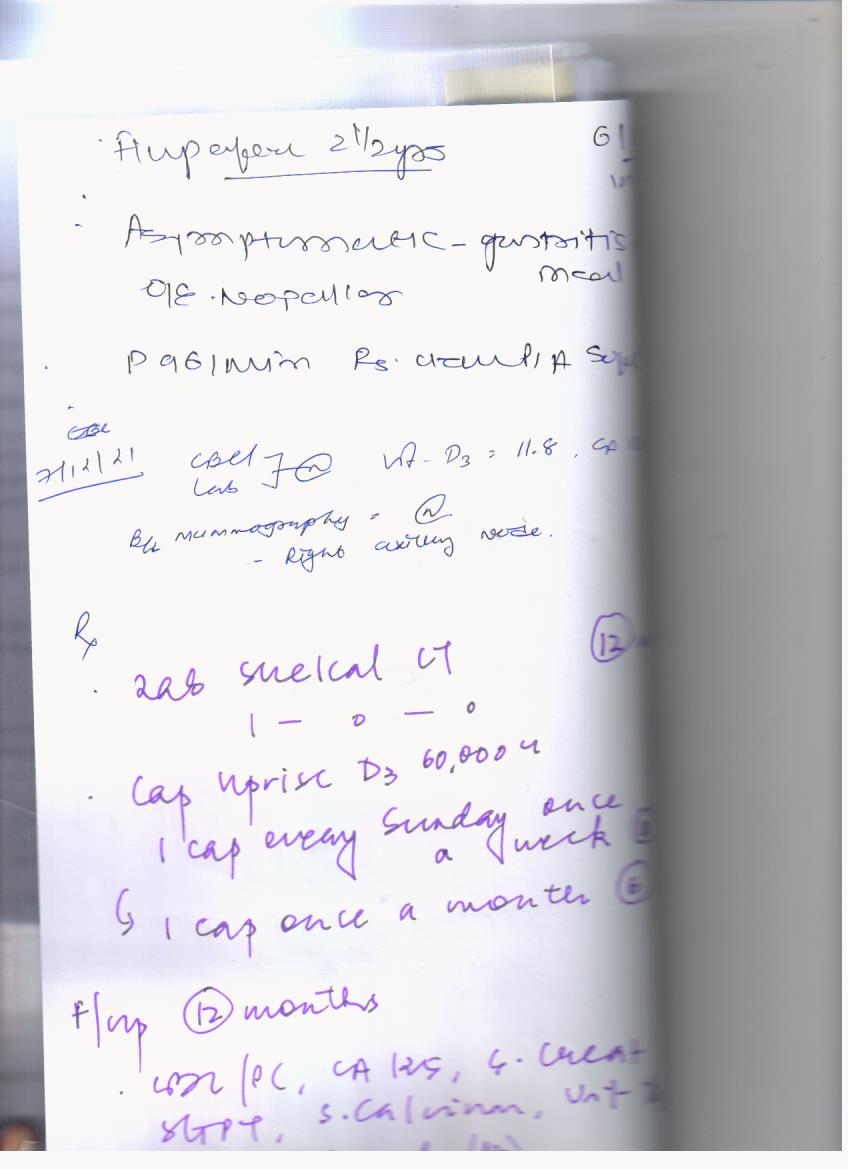 2 1/2 yrs G
Asymptomatic - gastritis
meal
O/E. No pallor
P 96/min Rs. clear P/A
7/12/21 CBC Lab ] (N) Vit-D3 = 11.8, CA
B/L mammography = (N)
- Right axillary node.
Rx
. Tab Shelcal CT (12)
1 - 0 - 0
. Cap Uprise D3 60,000 u
1 cap every Sunday once
a week
↳ 1 cap once a month (6)
F/up (12) months
. /PC, CA 125, S. Creat
SGPT, S. Calcium, Vit